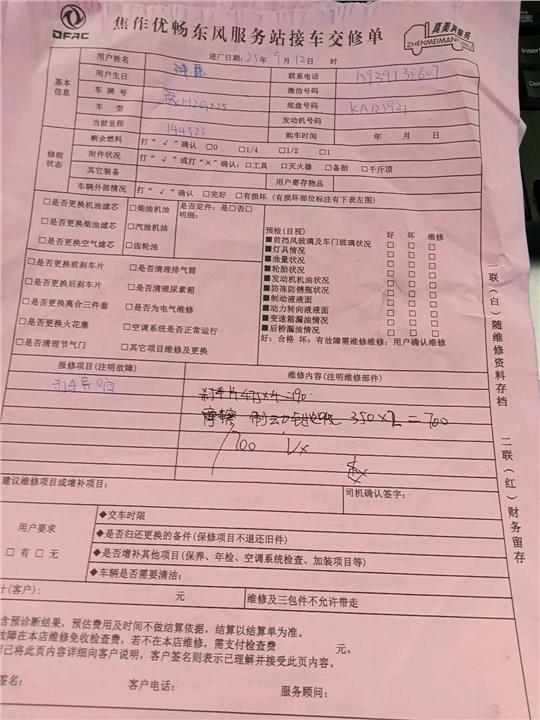 DFAC
焦作优畅东风服务站接车交修单
真美满服务
ZHENMEIMAN
进厂日期：25年9月12日 时
基本信息
用户姓名
联系电话 15939135607
用户生日
微信号码
车牌号
底盘号码 KA125921
车型
发动机号码
当前里程 144523
购车时间 年 月 日
修前状态
剩余燃料 打“√”确认 □0 □1/4 □1/2 □1
附件状况 打“√”或打“×”确认：□工具 □灭火器 □备胎 □千斤顶
其它装备 用户寄存物品
车辆外部情况 打“√”确认 □完好 □有损坏（有损坏部位标注有下表左图）
□是否更换机油滤芯 □柴油机油 是否定件：是□否□
明细：
□是否更换柴油滤芯 □汽油机油
□是否更换空气滤芯 □齿轮油
□是否更换前刹车片 □是否清理排气筒
□是否更换后刹车片 □是否清理尿素箱
□是否更换离合三件套 □是否为电气维修
□是否更换火花塞 □空调系统是否正常运行
□是否清理节气门 □其它项目维修及更换
预检（目视） 好 坏 维修
■前挡风玻璃及车门玻璃状况 □ □ □
■灯具情况 □ □ □
■油量状况 □ □ □
■轮胎状况 □ □ □
■发动机机油状况 □ □ □
■防冻防锈瓶状况 □ □ □
■制动液液面 □ □ □
■动力转向液液面 □ □ □
■变速箱漏油情况 □ □ □
■后桥漏油情况 □ □ □
好：合格 坏：有故障需维修维修：用户确认维修
报修项目（注明故障） 维修内容（注明维修部件）
刹车异响
刹车片 475×4=190
350×2=700
700
建议维修项目或增补项目： 司机确认签字：
用户要求
□有 □无
◆交车时限
◆是否归还更换的备件（保修项目不退还旧件）
◆是否增补其他项目（保养、年检、空调系统检查、加装项目等）
◆车辆是否需要清洁：
计（客户）： 元 维修及三包件不允许带走
含预诊断结果，预估费用及时间不做结算依据，结算以结算单为准。
故障在本店维修免收检查费，若不在本店维修，需支付检查费 元。
已将此页内容详细向客户说明，客户签名则表示已理解并接受此页内容。
签名： 客户电话： 服务顾问：
一联（白）随维修资料存档 二联（红）财务留存